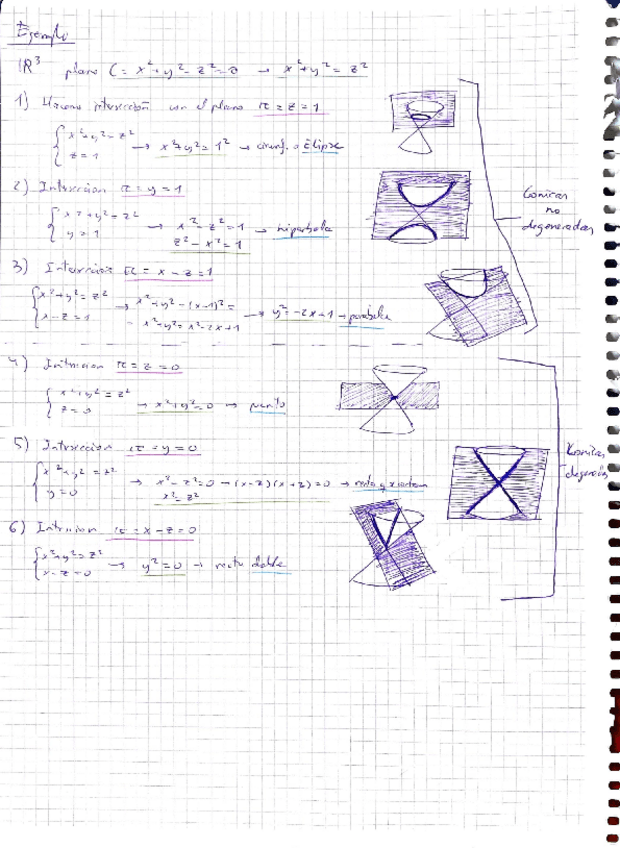 Ejemplo
ℝ³ plano C = x²+y²-z²=0 → x²+y²=z²
1) Hacemos intersección con el plano π = z = 1
{ x²+y²=z²
z=1 → x²+y²=1² → circunf. o Elipse
2) Interseccion π = y = 1
{ x²+y²=z²
y=1 → x²-z²=1 → hiperbola
z²-x²=1
3) Interseccion π = x-z=1
{ x²+y²=z²
x-z=1 → x²+y²-(x-1)²=
= x²+y²=x²-2x+1 → y²=-2x+1 → parabola
Conicas
no
degeneradas
4) Interseccion π = z = 0
{ x²+y²=z²
z=0 → x²+y²=0 → punto
5) Interseccion π = y = 0
{ x²+y²=z²
y=0 → x²-z²=0 → (x-z)(x+z)=0 →
x²=z²
Conicas
6) Interseccion π = x-z=0
{ x²+y²=z²
x-z=0 → y²=0 → recta doble